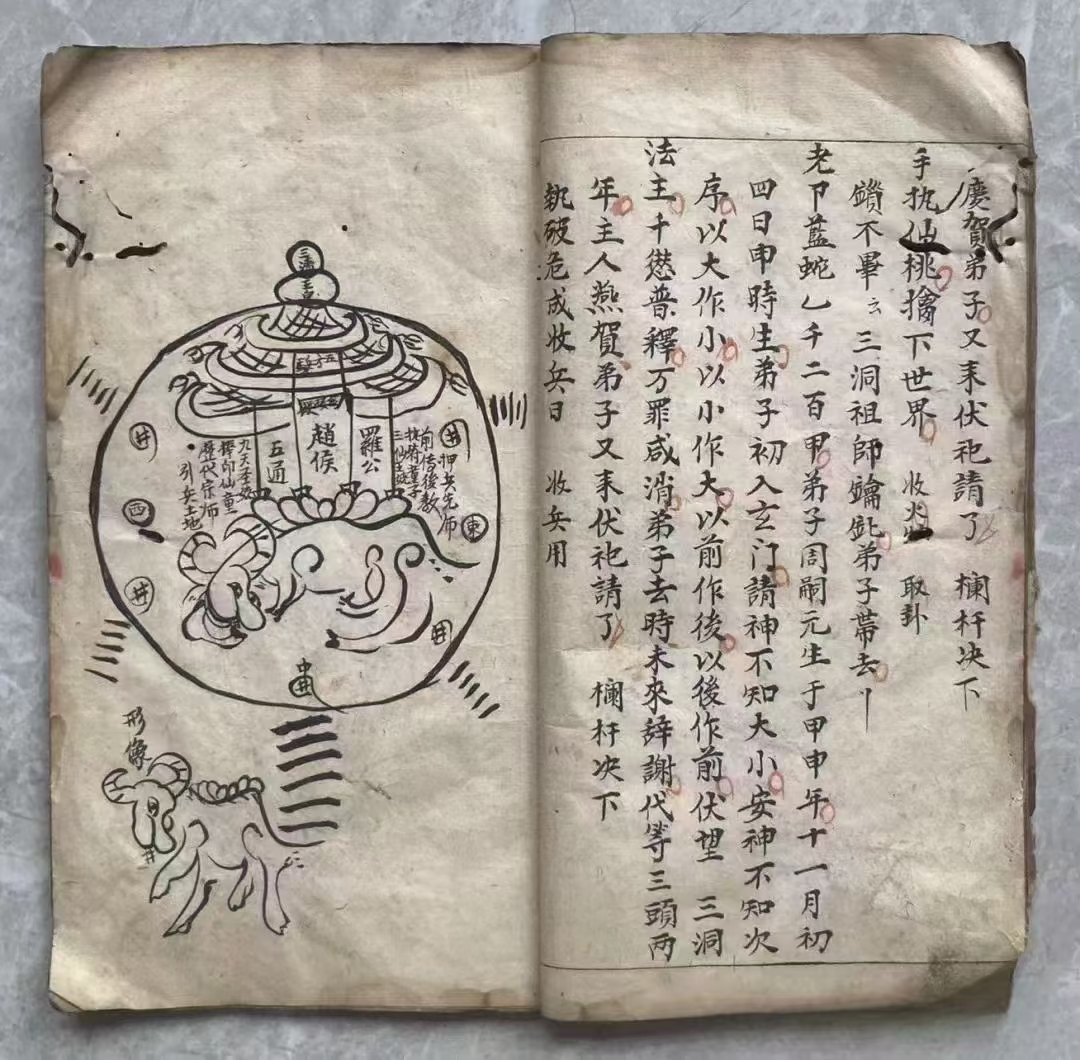 慶賀弟子又来伏祀請了 欄杆决下
手执仙桃擒下世界 收火 取卦
鑽不畢云三洞祖師鑰匙弟子帶去
老卩藍蛇乙千二百甲弟子周嗣元生于甲申年十一月初
四日申時生弟子初入玄门請神不知大小安神不知次
序以大作小以小作大以前作後以後作前伏望 三洞
法主千愆普釋万罪咸消弟子去時未來辝謝代等三頭兩
年主人燕賀弟子又来伏祀請了 欄杆决下
執破危成收兵日 收兵用
三清
五通
趙侯
羅公
押兵先师
前传後教
三仙王姣
九天圣姣
歷代宗师
引兵土地
井
井
西
東
井
井
中井
形像
井